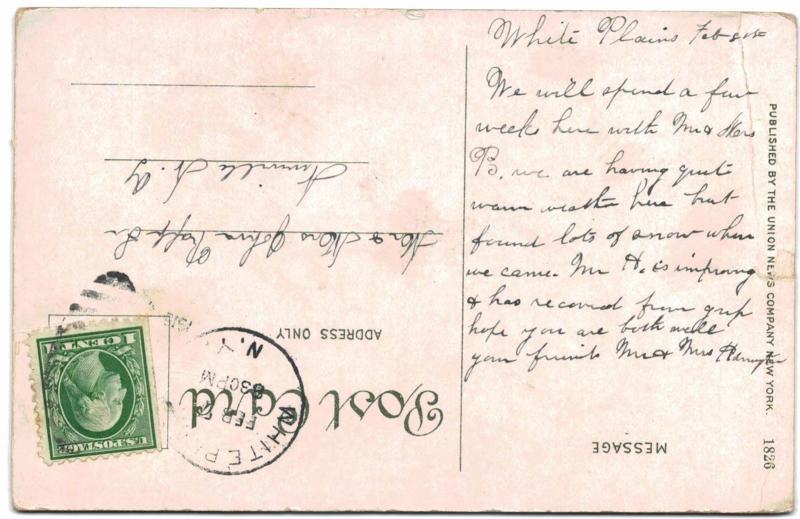 White Plains Feb
We will spend a few
weeks here with Mr & Mrs
B. we are having quite
warm weather here but
found lots of snow when
we came. Mr H. is improving
& has recovered from grip
hope you are both well
your friends Mr & Mrs Harrington
MESSAGE
PUBLISHED BY THE UNION NEWS COMPANY NEW YORK.
1826
Post Card
ADDRESS ONLY
WHITE P
FEB 5
830PM
N.Y.
U.S. POSTAGE
1 CENT 1
Mr & Mrs John
N. Y